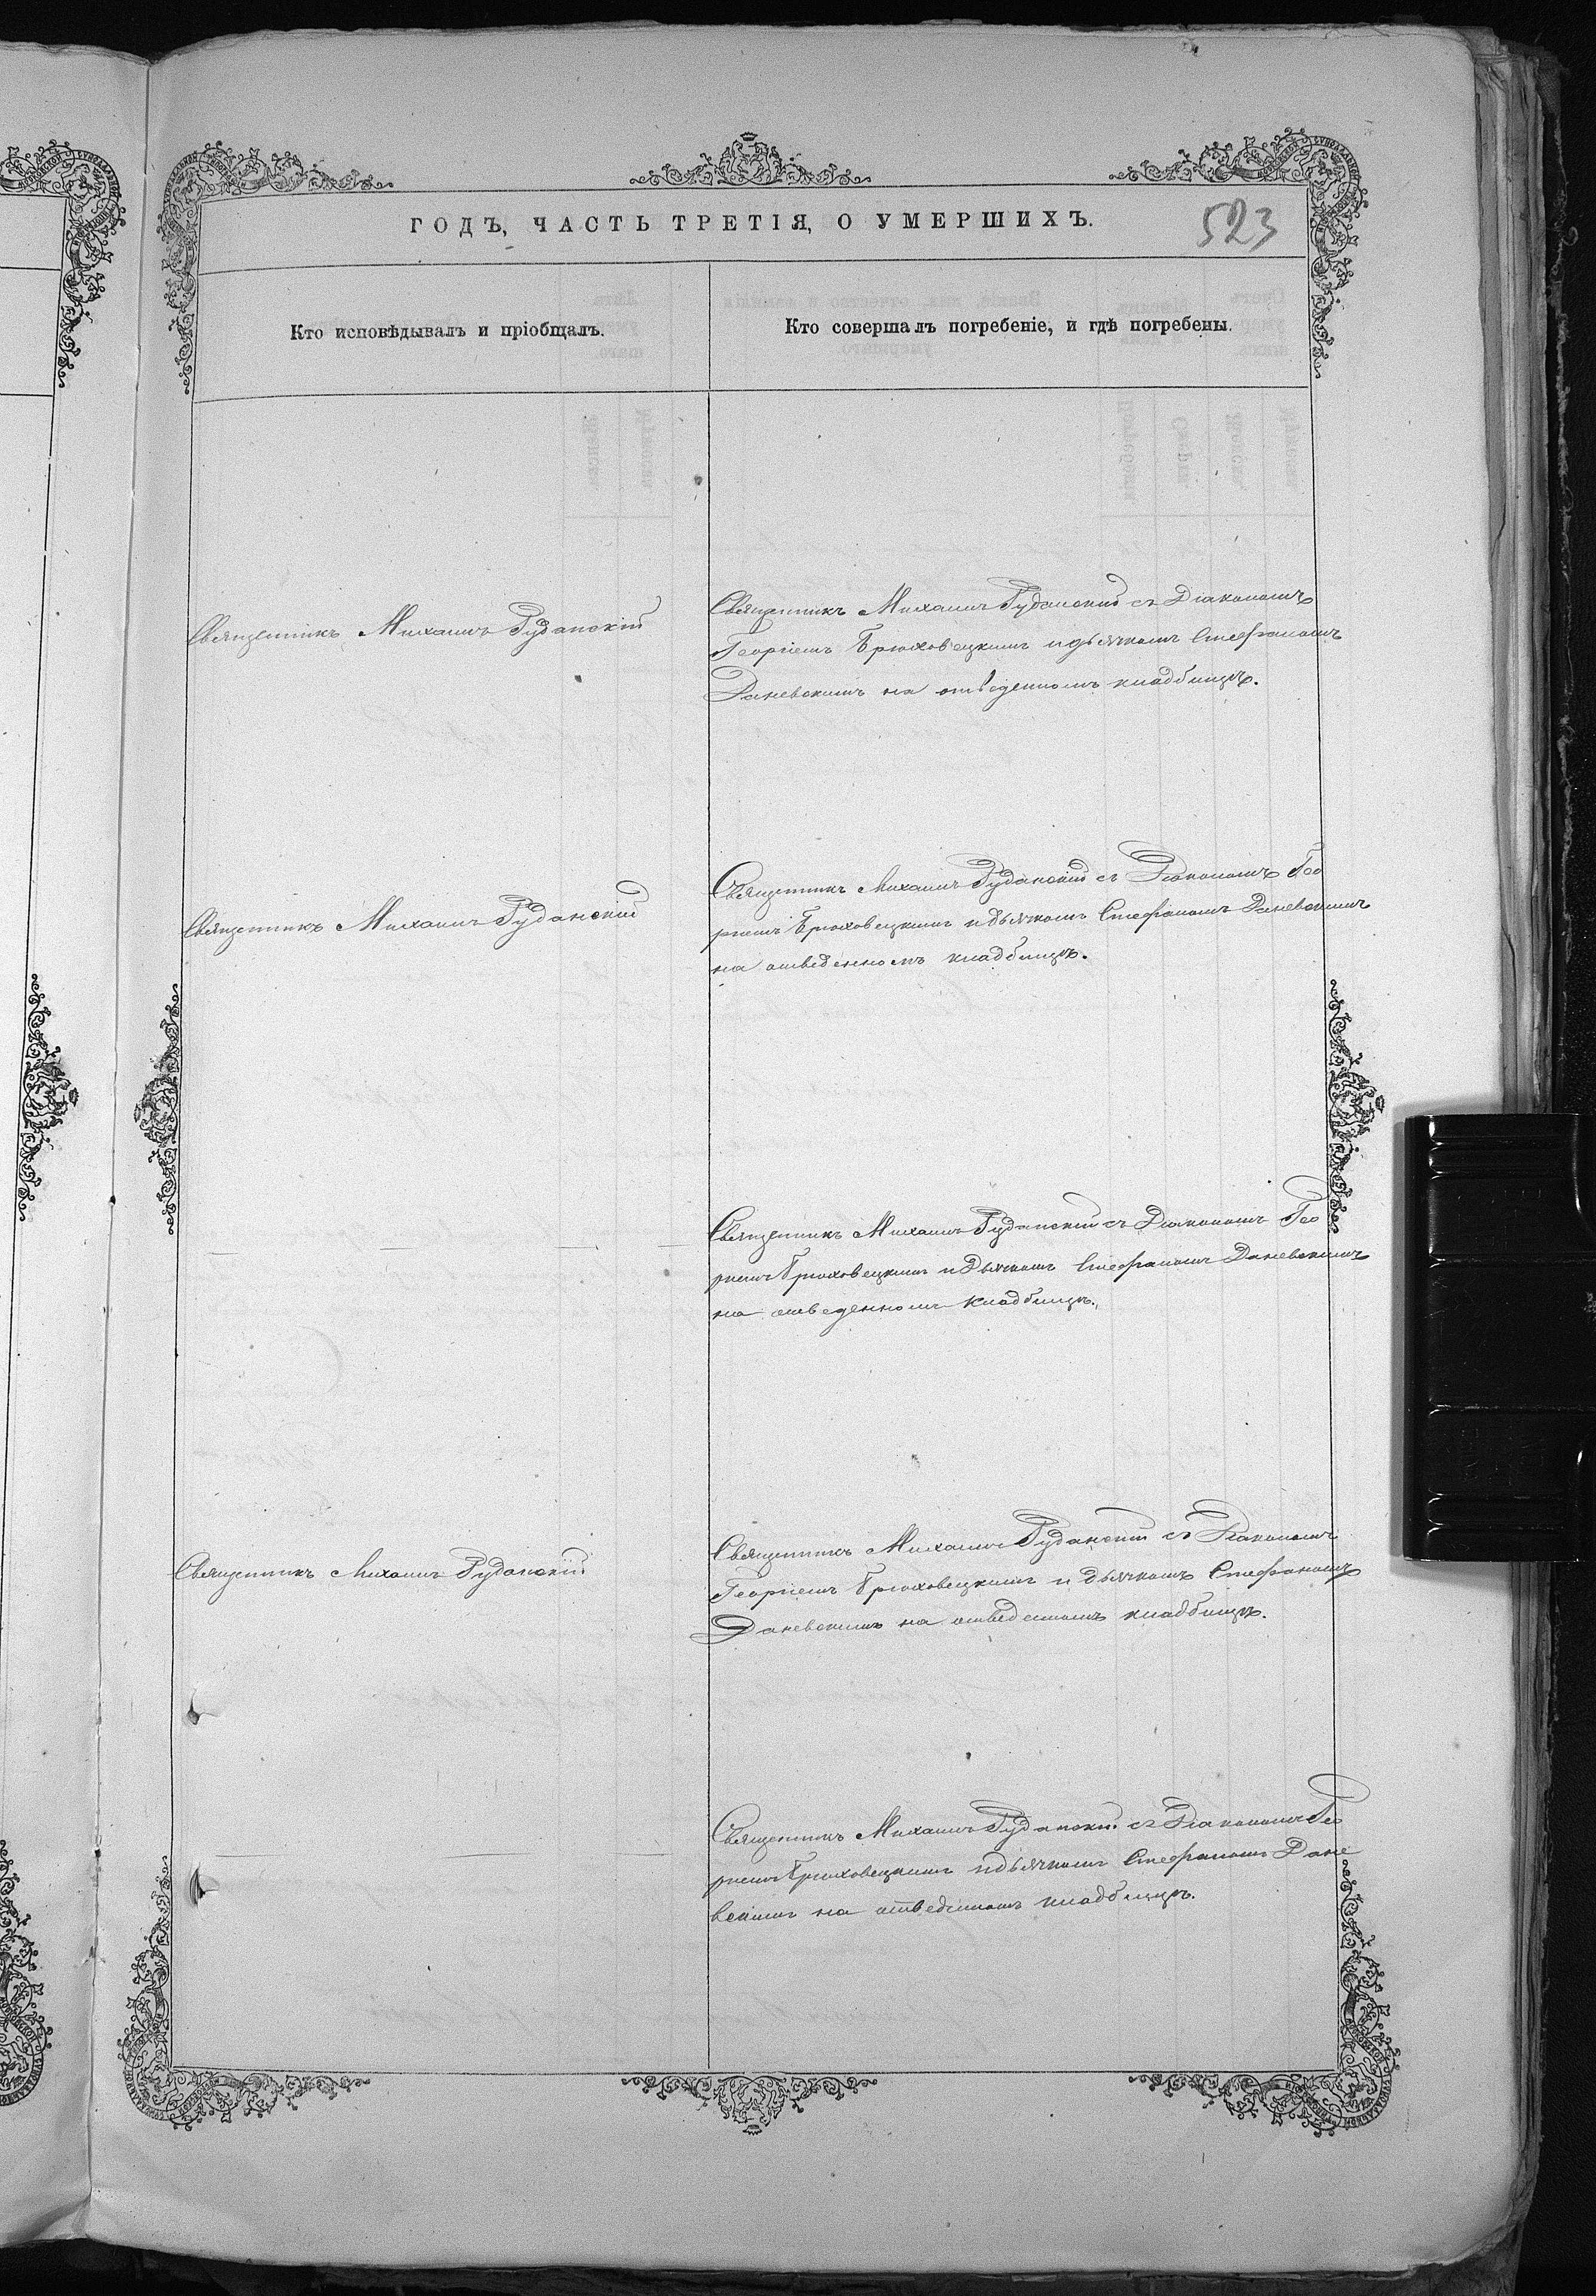 ГОДЪ, ЧАСТЬ ТРЕТІЯ, О УМЕРШИХЪ.
523
Кто исповѣдывалъ и пріобщалъ.
Кто совершалъ погребеніе, и гдѣ погребены.
Священникъ Михаилъ Руданскій
Священникъ Михаилъ Руданскій съ Діакономъ
Георгіемъ Брюховецкимъ и дьячкомъ Стефаномъ
Даневскимъ на отведенномъ кладбищѣ.
Священникъ Михаилъ Руданскій
Священникъ Михаилъ Руданскій съ Діакономъ Гео
ргіемъ Брюховецкимъ и дьячкомъ Стефаномъ Даневскимъ
на отведенномъ кладбищѣ.
Священникъ Михаилъ Руданскій съ Діакономъ Гео
ргіемъ Брюховецкимъ и Дьячкомъ Стефаномъ Даневскимъ
на отведенномъ кладбищѣ.
Священникъ Михаилъ Руданскій
Священникъ Михаилъ Руданскій съ Діакономъ
Георгіемъ Брюховецкимъ и дьячкомъ Стефаномъ
Даневскимъ на отведенномъ кладбищѣ.
Священникъ Михаилъ Руданскій съ Діакономъ Гео
ргіемъ Брюховецкимъ и дьячкомъ Стефаномъ Дане
вскимъ на отведенномъ кладбищѣ.